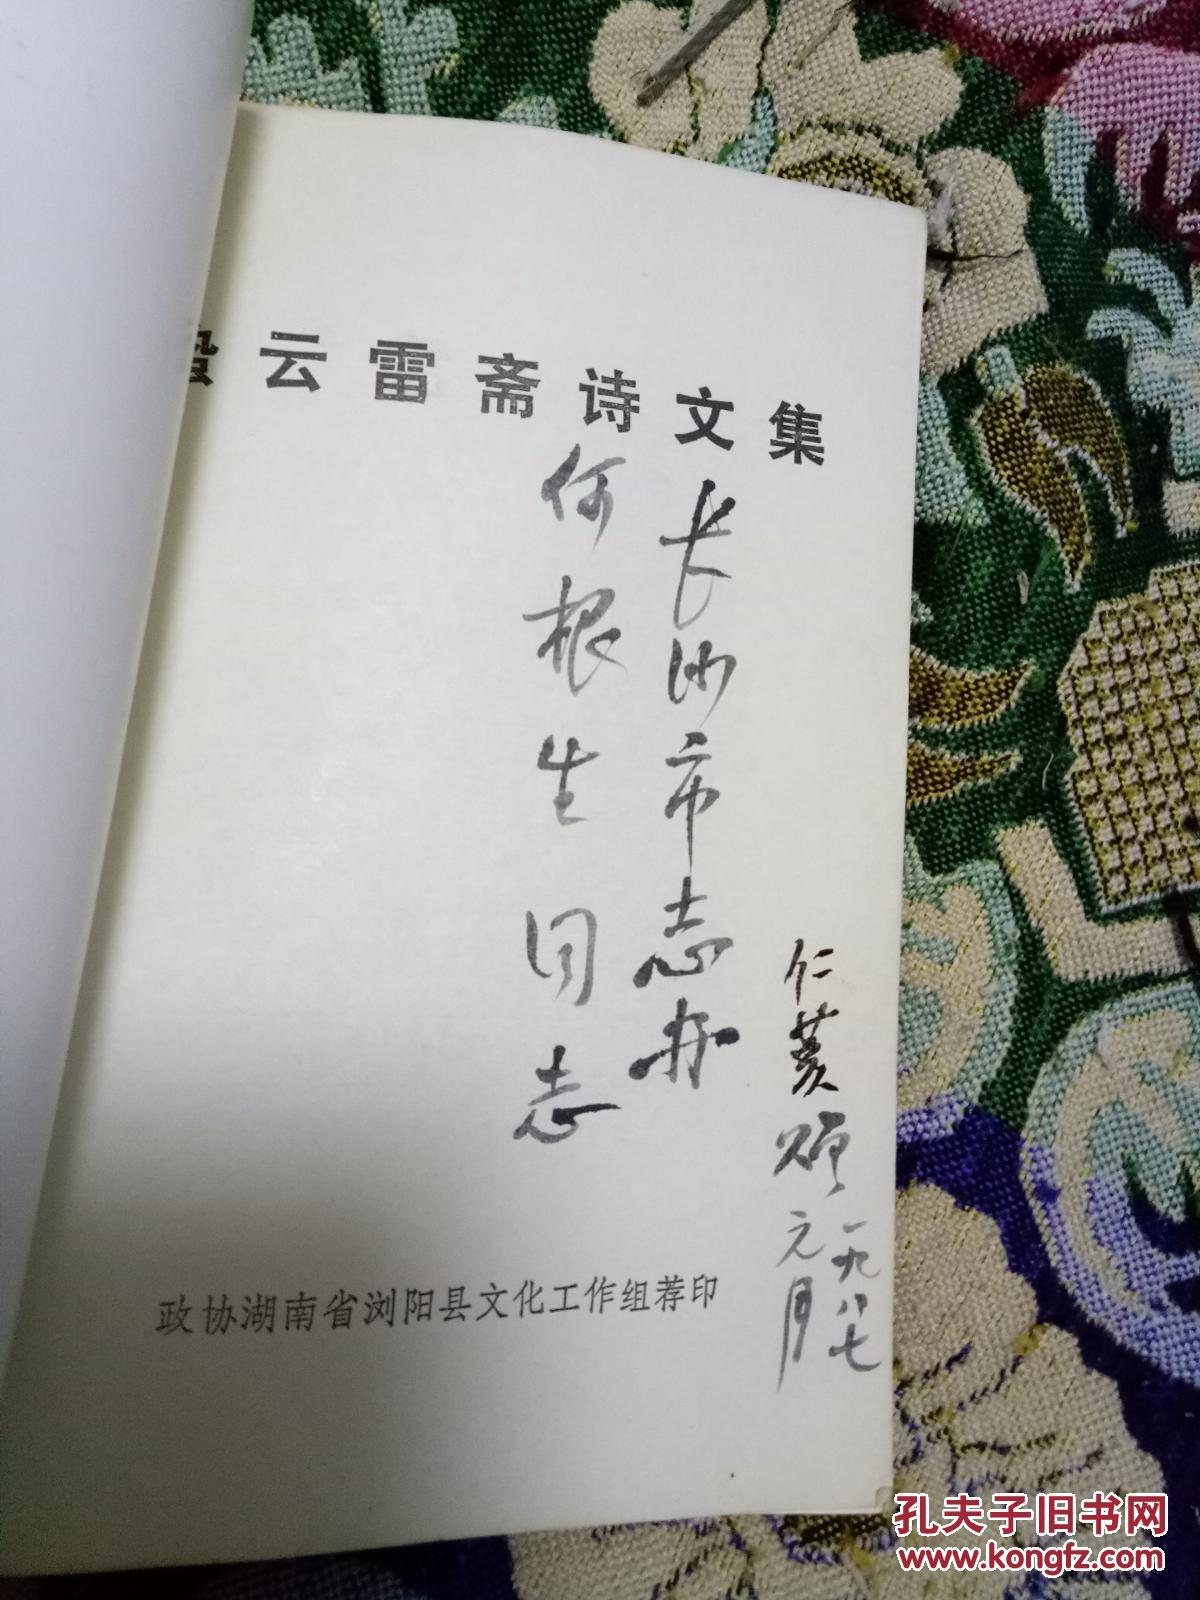 蛰云雷斋诗文集
长沙市志办
何根生同志
仁菱
一九八七
元月
政协湖南省浏阳县文化工作组荐印
孔夫子旧书网
www.kongfz.com